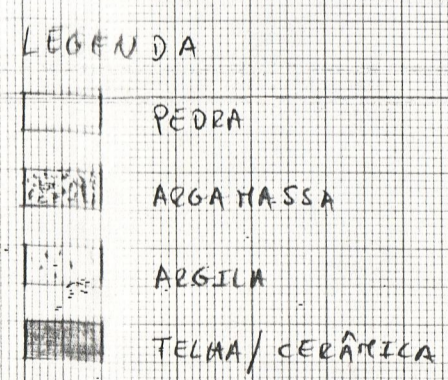 LEGENDA
PEDRA
ARGAMASSA
ARGILA
TELHA/CERÂMICA